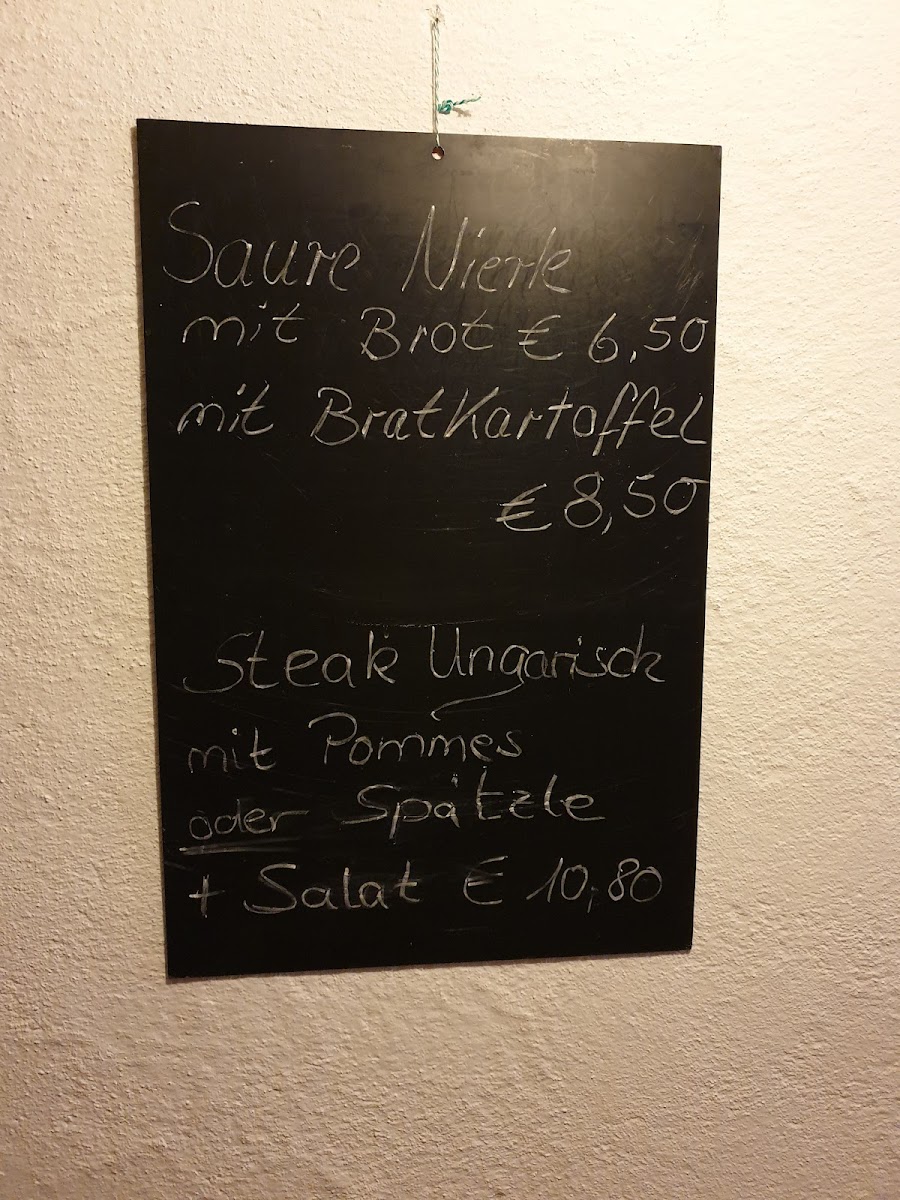 Saure Nierle
mit Brot € 6,50
mit BratKartoffel
€ 8,50
Steak Ungarisch
mit Pommes
oder Spätzle
+ Salat € 10,80